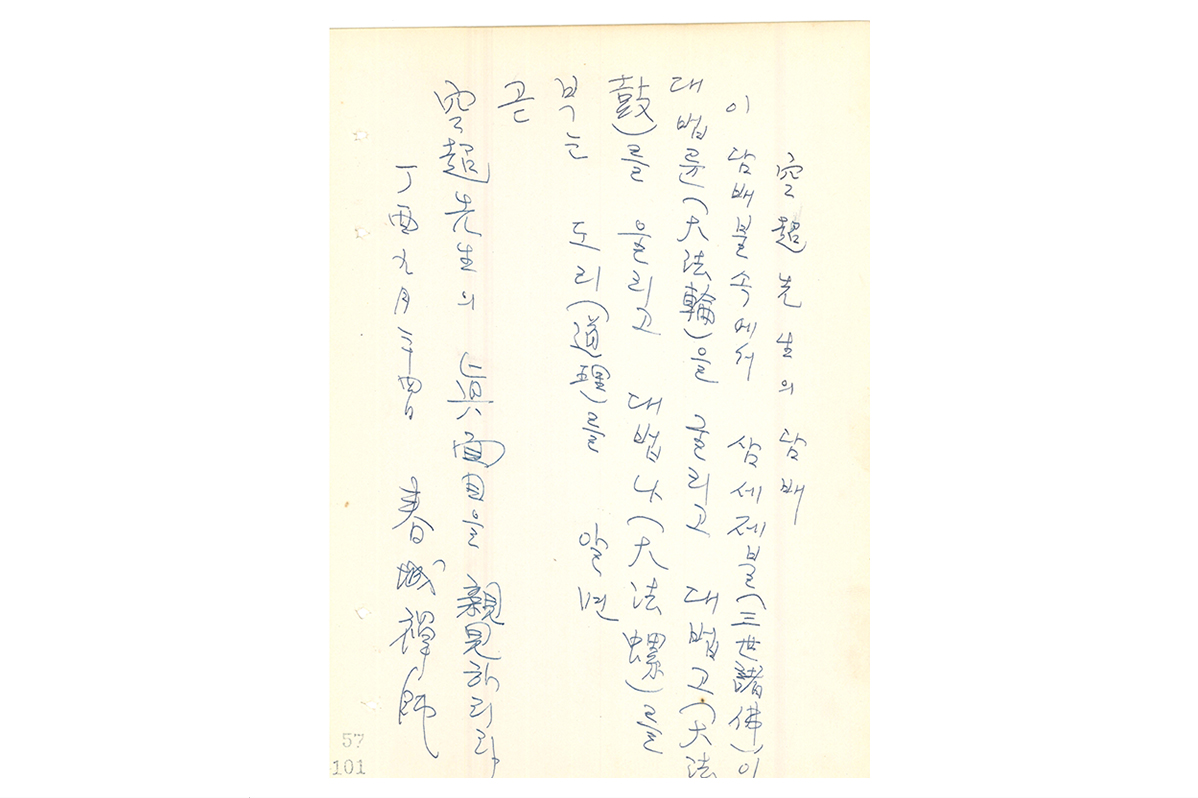 空超先生의 담배
이 담배불속에서 삼세제불(三世諸佛)이
대법륜(大法輪)을 굴리고 대법고(大法
鼓)를 울리고 대법나(大法螺)를
부는 도리(道理)를 알면
곧
空超先生의 眞面目을 親見하리라
丁酉九月二十四日 春城禪師
57
101